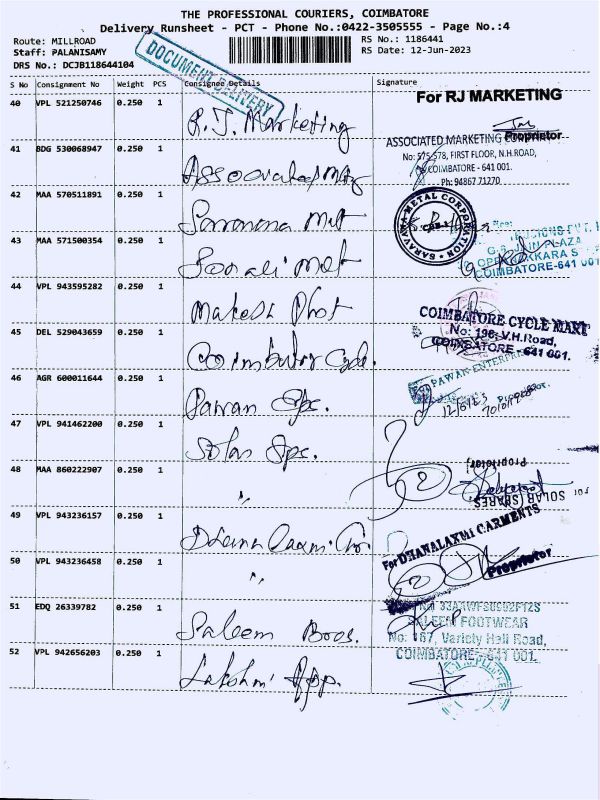 THE PROFESSIONAL COURIERS, COIMBATORE
Delivery Runsheet - PCT - Phone No.:0422-3505555 - Page No.:4
Route: MILLROAD
Staff: PALANISAMY
DRS No.: DCJB118644104
RS No.: 1186441
RS Date: 12-Jun-2023
DOCUMENT DELIVERY
S No Consignment No Weight PCS Consignee Details Signature
40 VPL 521250746 0.250 1 R.J. Marketing
For RJ MARKETING
Proprietor
41 BDG 530068947 0.250 1
ASSOCIATED MARKETING COMPANY
No: 575-578, FIRST FLOOR, N.H.ROAD,
COIMBATORE - 641 001.
Ph: 94867 71270
42 MAA 570511891 0.250 1
SARAVANA METAL CORPORATION
43 MAA 571500354 0.250 1 Sonali Met
JAIN PLAZA
COIMBATORE-641 001
44 VPL 943595282 0.250 1
COIMBATORE CYCLE MART
No: 196, V.H.Road,
COIMBATORE - 641 001.
45 DEL 529043659 0.250 1 Coimbatore Cycle.
PAWAN ENTERPRISES
46 AGR 600011644 0.250 1 Pawan
Proprietor.
12/6/23
47 VPL 941462200 0.250 1 Solar Sps.
48 MAA 860222907 0.250 1 "
Proprietor
For SOLAR SPARES
49 VPL 943236157 0.250 1
For DHANALAXMI GARMENTS
Proprietor
50 VPL 943236458 0.250 1 "
51 EDQ 26339782 0.250 1 Saleem Bros.
SALEEM FOOTWEAR
No: 167, Variety Hall Road,
COIMBATORE - 641 001.
52 VPL 942656203 0.250 1 Lakshmi App.